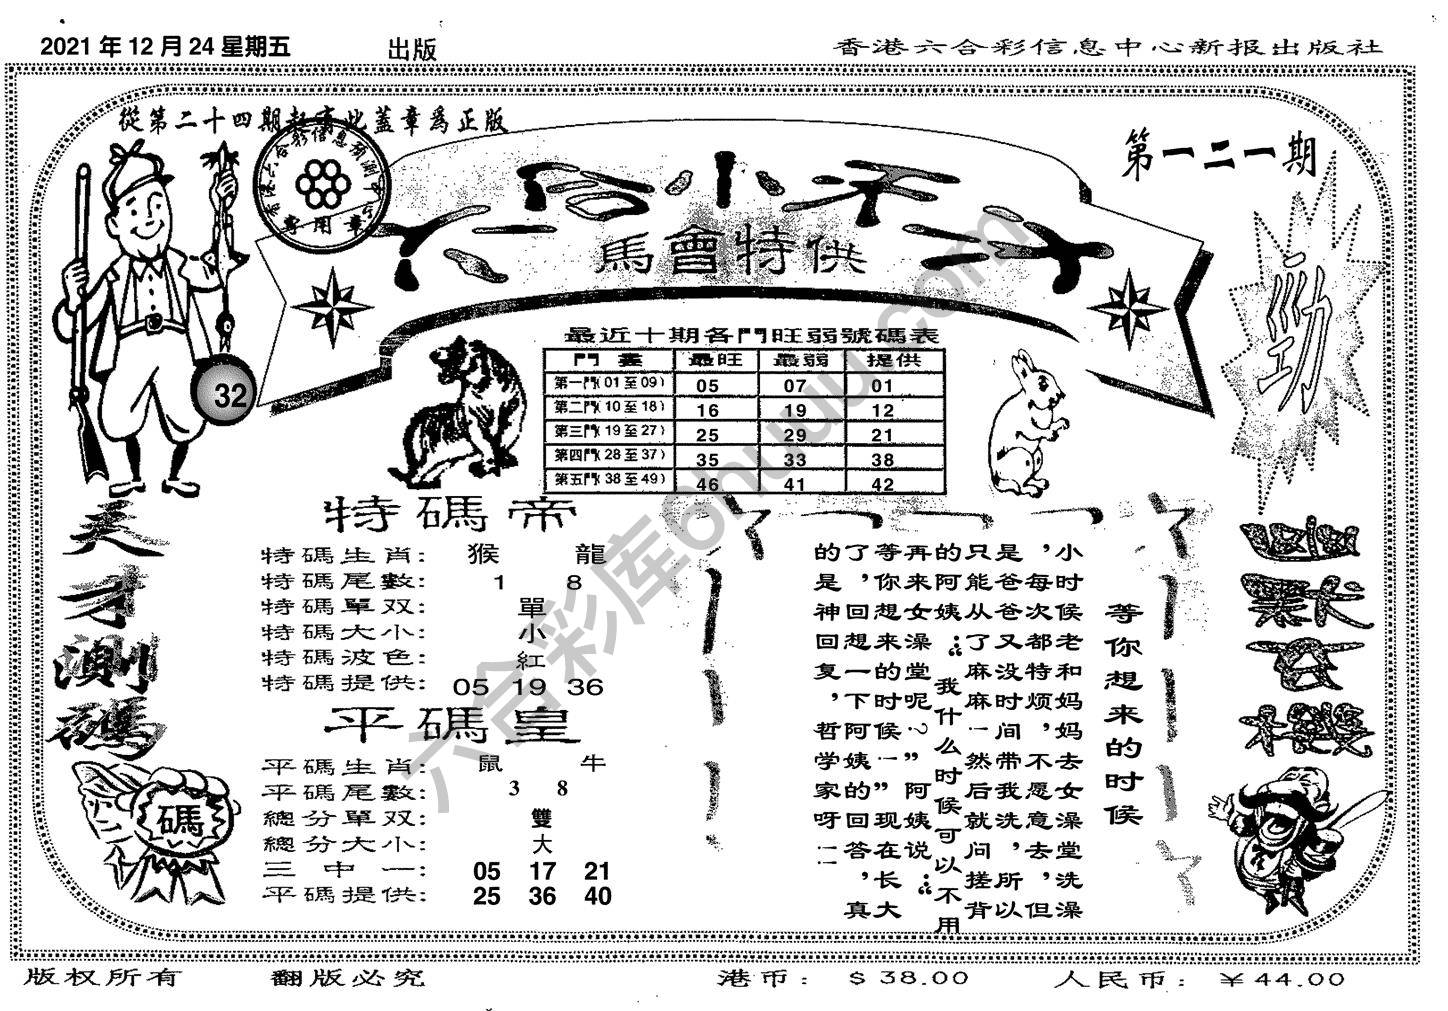 2021 年 12 月 24 星期五
出版
香港六合彩信息中心新报出版社
從第二十四期起有此蓋章爲正版
香港六合彩信息預測中心
專用章
第一二一期
馬會特供
勁
32
最近十期各門旺弱號碼表
門 最旺 最弱 提供
第一門(01 至 09) 05 07 01
第二門(10 至 18) 16 19 12
第三門(19 至 27) 25 29 21
第四門(28 至 37) 35 33 38
第五門(38 至 49) 46 41 42
天才測碼
碼
特碼帝
特碼生肖: 猴 龍
特碼尾數: 1 8
特碼單双: 單
特碼大小: 小
特碼波色: 紅
特碼提供: 05 19 36
平碼皇
平碼生肖: 鼠 牛
平碼尾數: 3 8
總分單双: 雙
總分大小: 大
三中一: 05 17 21
平碼提供: 25 36 40
等你想来的时候
小时候老和妈妈去女澡堂洗澡
，每次都特烦，不愿意去，但
是爸爸又没时间带我洗，所以
只能从了麻麻一然后就问搓背
的阿姨：我什么时候可以不用
再来女澡堂呢？”阿姨说：
等你想来的时候一”现在长大
了，回想一下阿姨的回答，真
的是神回复，哲学家呀——
六合彩库6huuu.com
版权所有
翻版必究
港币: $38.00
人民币: ￥44.00